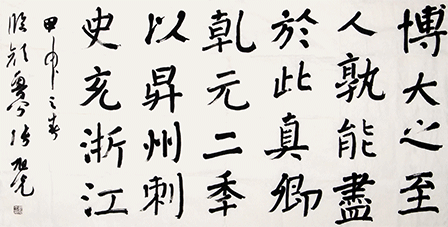 博大之至
人孰能盡
於此真卿
乹元二季
以昇州刺
史充浙江
甲申之春
临颜鲁公张旭光